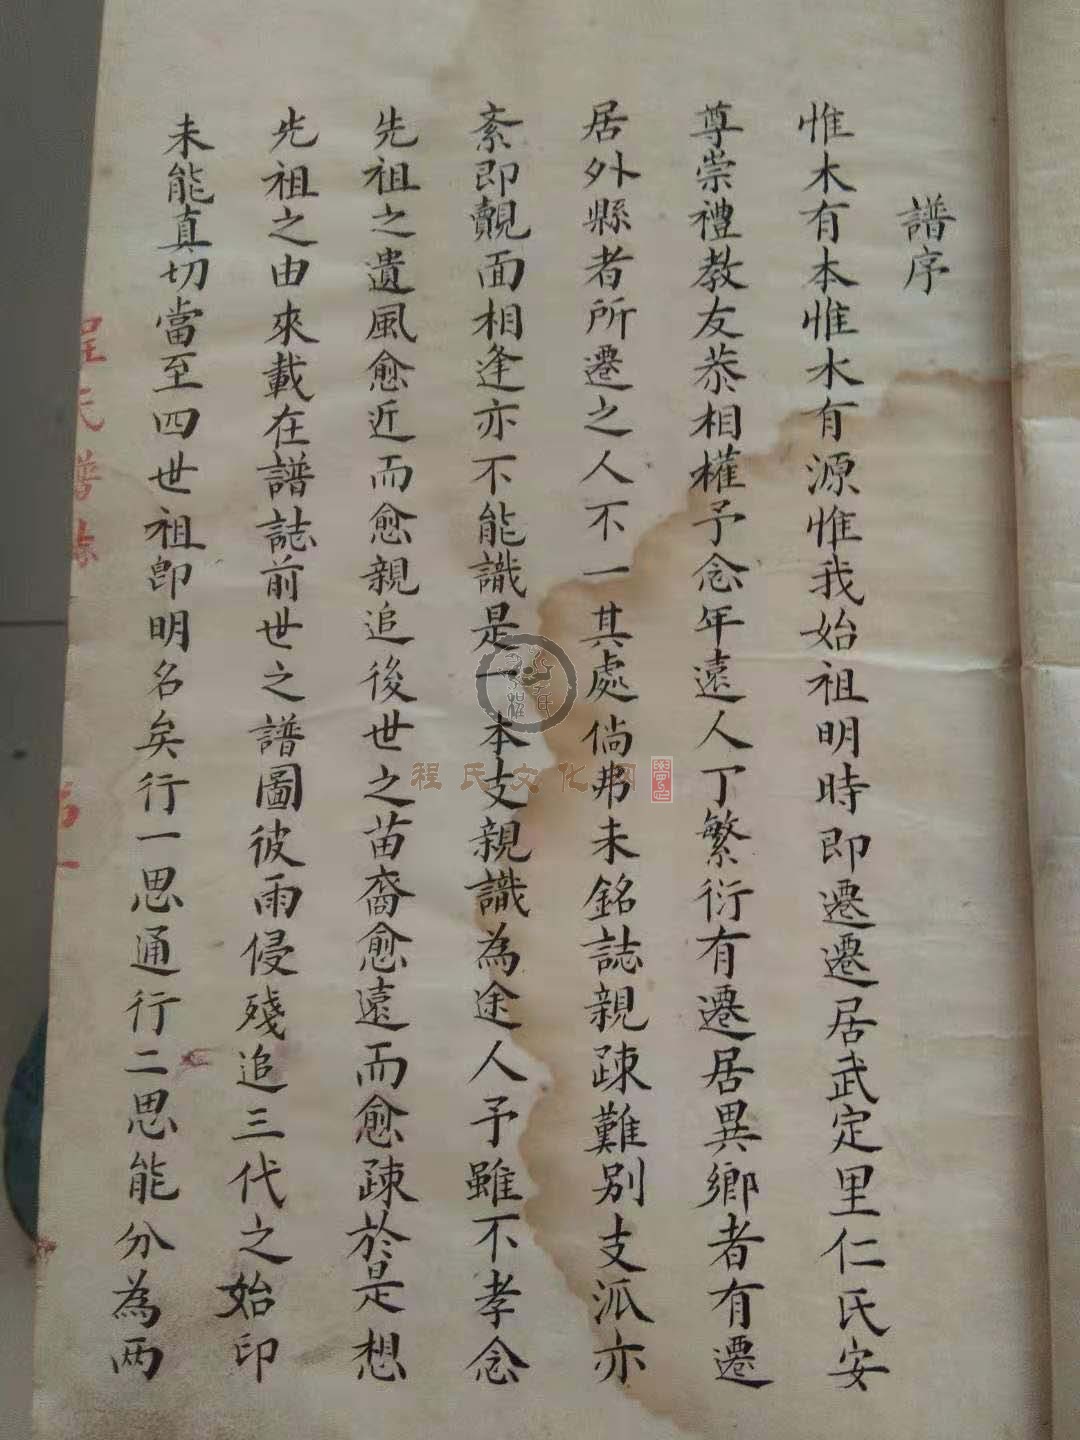 譜序
惟木有本惟水有源惟我始祖明時即遷遷居武定里仁氏安
尊崇禮教友恭相權予念年遠人丁繁衍有遷居異鄉者有遷
居外縣者所遷之人不一其處倘弗未銘誌親疎難别支派亦
紊即覿面相逢亦不能識是一本支親識為途人予雖不孝念
先祖之遺風愈近而愈親追後世之苗裔愈遠而愈疎於是想
先祖之由來載在譜誌前世之譜圖彼雨侵殘追三代之始印
未能真切當至四世祖即明名矣行一思通行二思能分為兩
程氏譜誌
程氏文化网